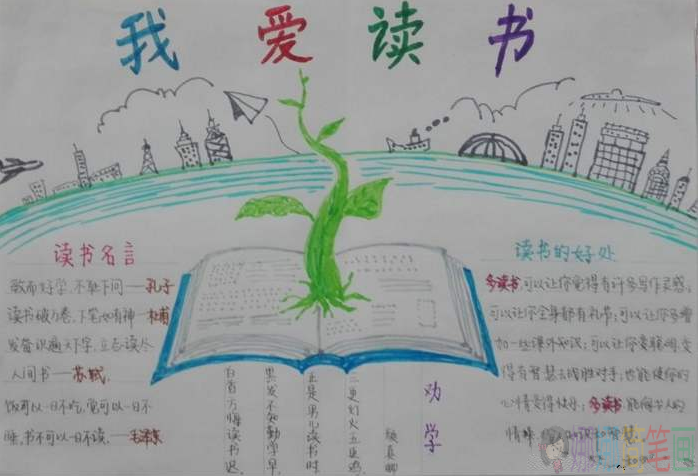 我 爱 读 书
读书名言
敏而好学,不耻下问——孔子
读书破万卷,下笔如有神 杜甫
发奋识遍天下字,立志读尽
人间书——苏轼.
饭可以一日不吃,觉可以一日不
睡,书不可以一日不读.——毛泽东
劝 学
颜真卿
三更灯火五更鸡
正是男儿读书时
黑发不知勤学早
白首方悔读书迟
读书的好处
多读书,可以让你觉得有许多写作灵感;
可以让你全身都有礼节;可以让你多增
加一些课外知识;可以让你变聪明,变
得有智慧去战胜对手;也能使你的
心情变得快乐;多读书,能陶冶人的
情